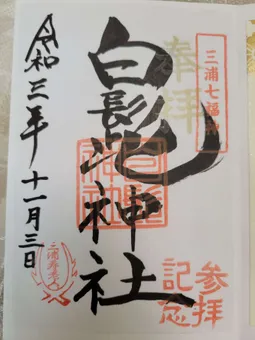 三浦七福神
奉拝
白髭神社
白髭神社
令和三年十一月三日
参拝
記念